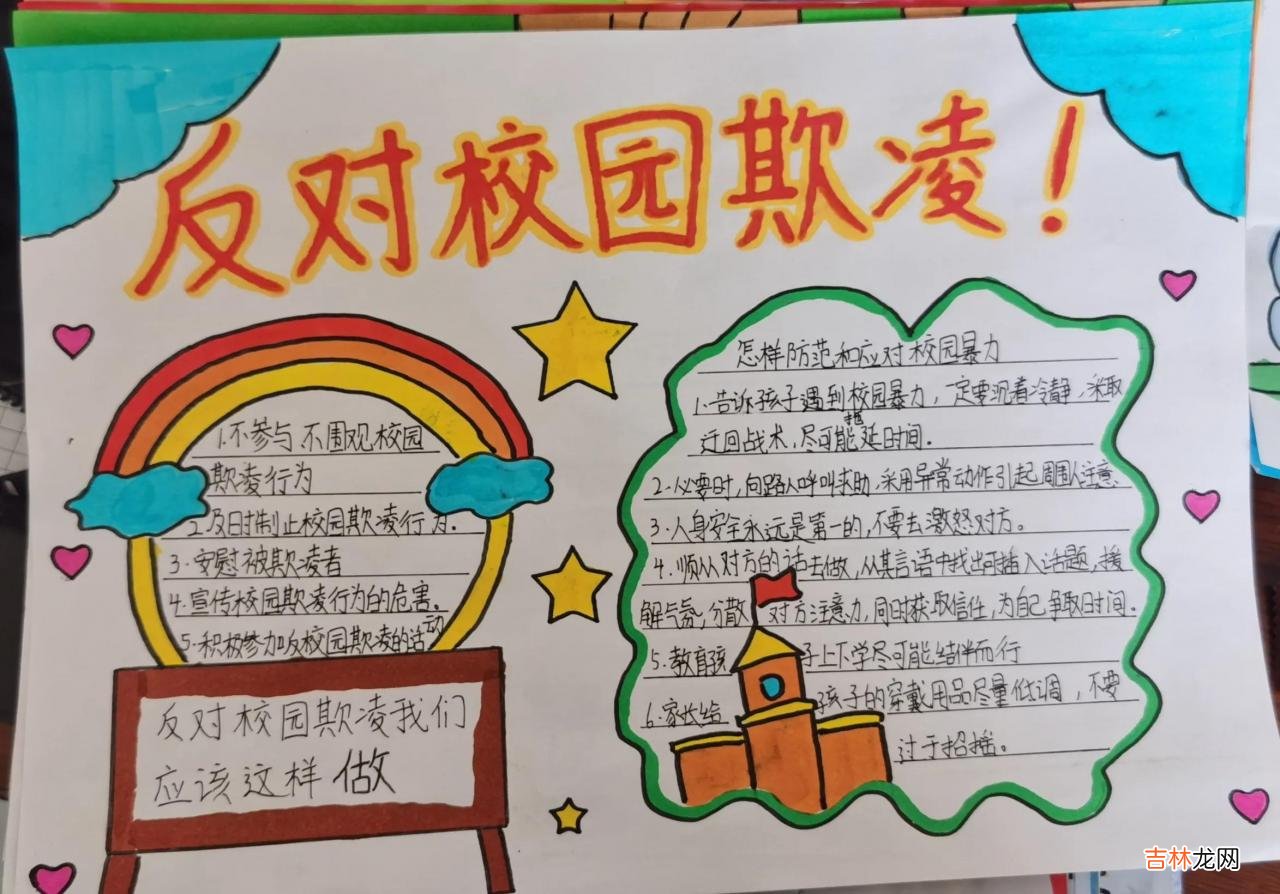 反对校园欺凌！
1.不参与 不围观 校园
欺凌行为
2.及时制止校园欺凌行为.
3.安慰被欺凌者
4.宣传校园欺凌行为的危害.
5.积极参加反校园欺凌的活动
反对校园欺凌我们
应该这样做
怎样防范和应对校园暴力
1.告诉孩子遇到校园暴力，一定要沉着冷静，采取
迂回战术，尽可能拖延时间.
2.必要时，向路人呼叫求助，采用异常动作引起周围人注意
3.人身安全永远是第一的，不要去激怒对方。
4.顺从对方的话去做，从其言语中找出可插入话题，缓
解气氛，分散对方注意力，同时获取信任，为自己争取时间.
5.教育孩子上下学尽可能结伴而行
6.家长给孩子的穿戴用品尽量低调，不要
过于招摇。
吉林龙网